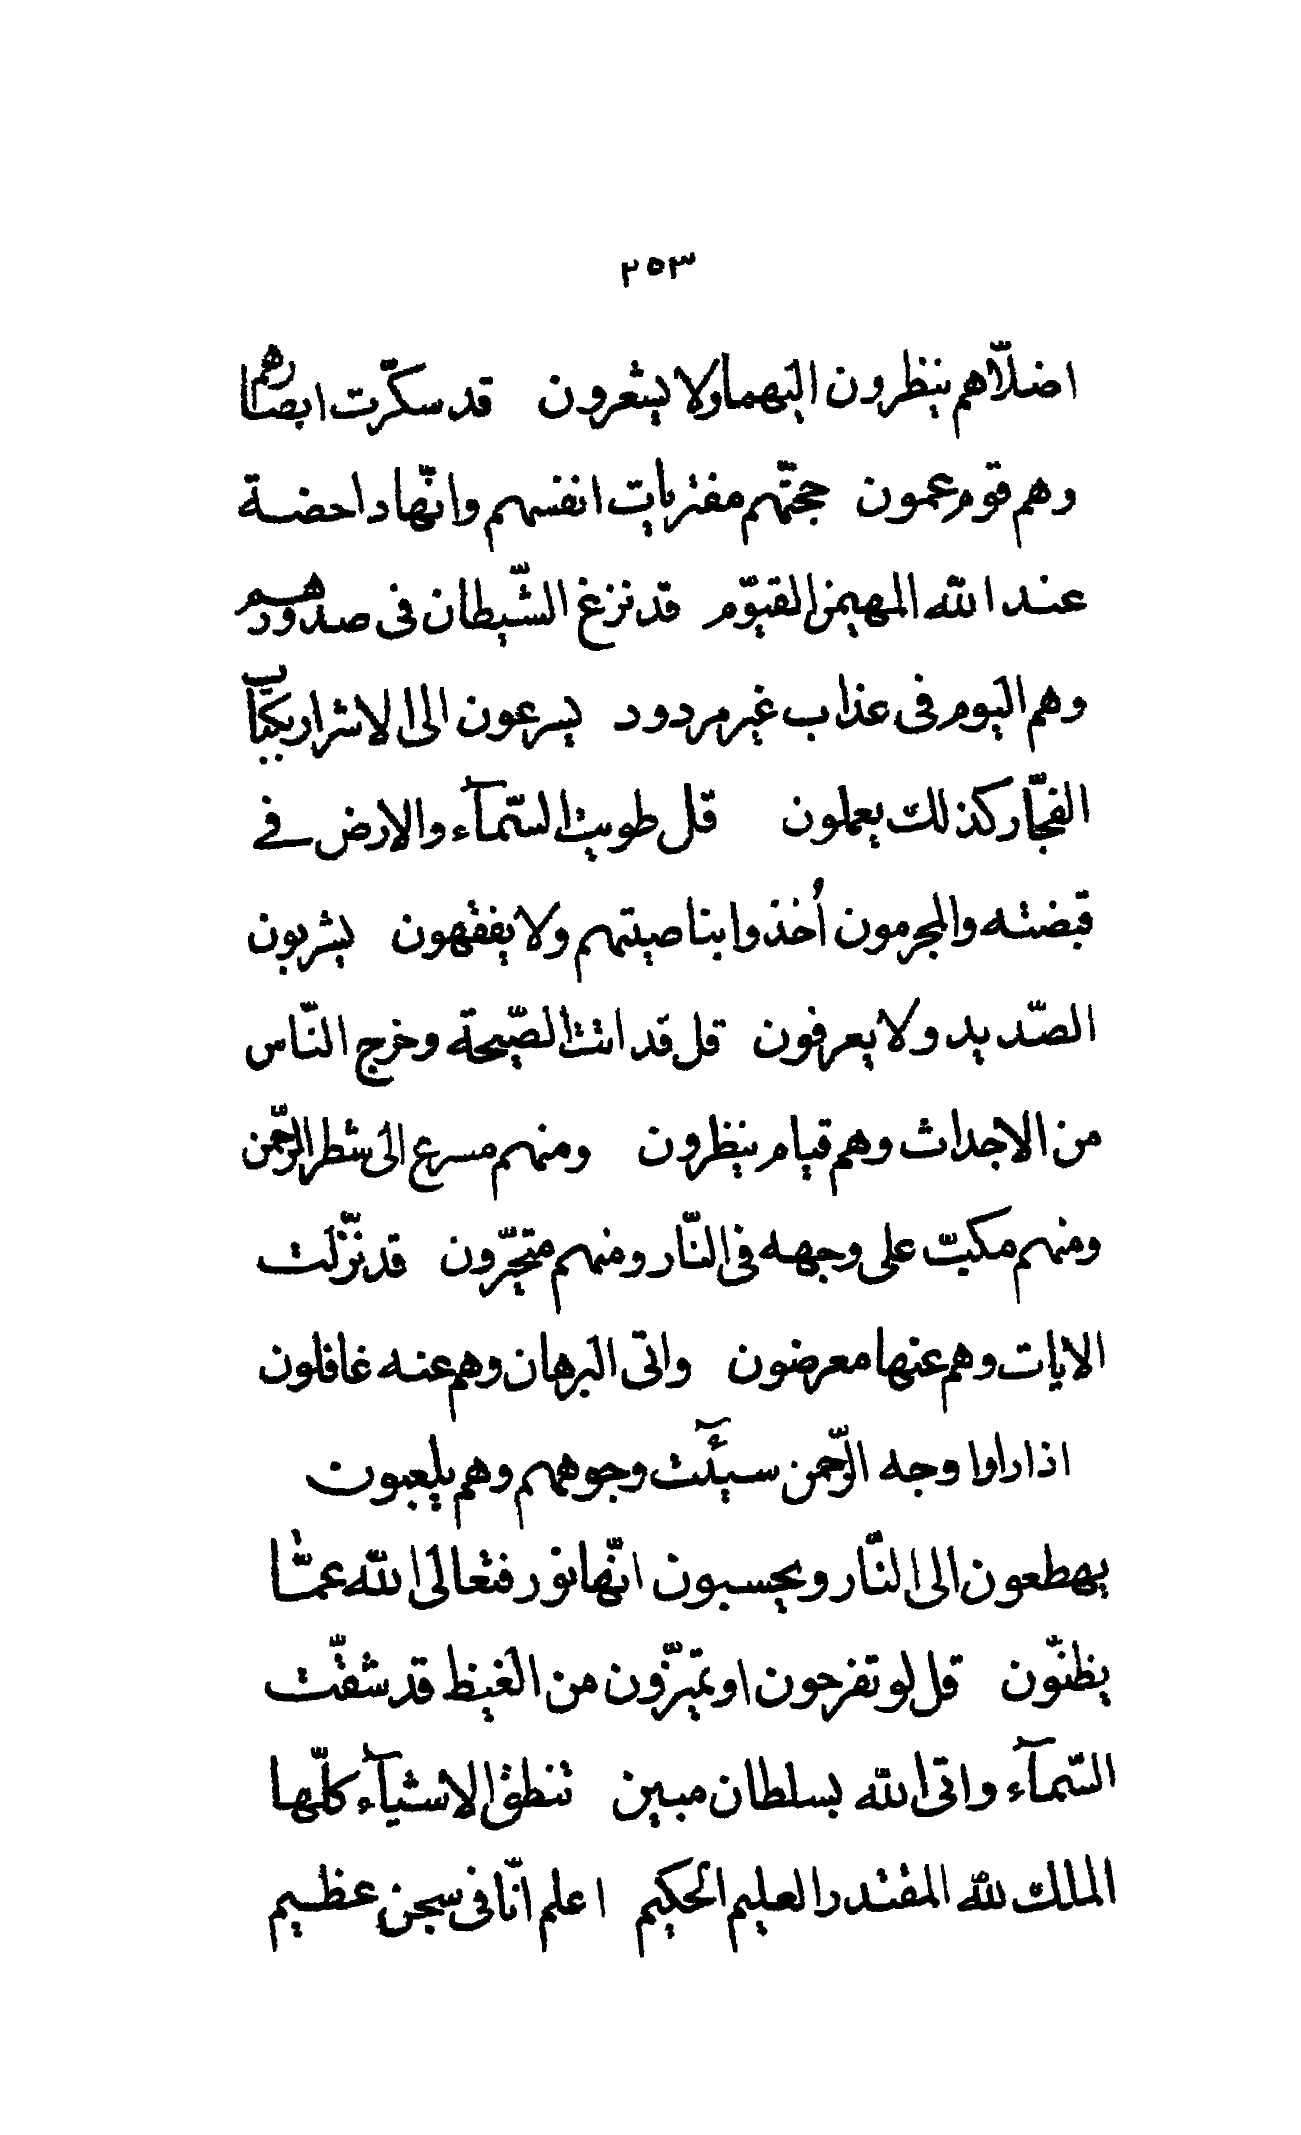 ٢٥٣
اضلّاهم ينظرون اليهما ولا يشعرون قد سكّرت ابصارهم
وهم قوم عمون حجّتهم مفتريات انفسهم وانّها داحضة
عند الله المهيمن القيّوم قد نزغ الشّيطان فى صدورهم
وهم اليوم فى عذاب غير مردود يسرعون الى الاشرار بكتاب
الفجّار كذلك يعملون قل طويت السّمآء والارض فى
قبضته والمجرمون اُخذوا بناصيتهم ولا يفقهون يشربون
الصّديد ولا يعرفون قل قد اتت الصّيحة وخرج النّاس
من الاجداث وهم قيام ينظرون ومنهم مسرع الى شطر الرّحمن
ومنهم مكبّ على وجهه فى النّار ومنهم متحيّرون قد نزّلت
الايات وهم عنها معرضون واتى البرهان وهم عنه غافلون
اذا راوا وجه الرّحمن سيئَت وجوههم وهم يلعبون
يهطعون الى النّار ويحسبون انّها نور فتعالى الله عمّا
يظنّون قل لو تفرحون او تميّزون من الغيظ قد شقّت
السّمآء واتى الله بسلطان مبين تنطق الاشيآء كلّها
الملك لله المقتدر العليم الحكيم اعلم انّا فى سجن عظيم